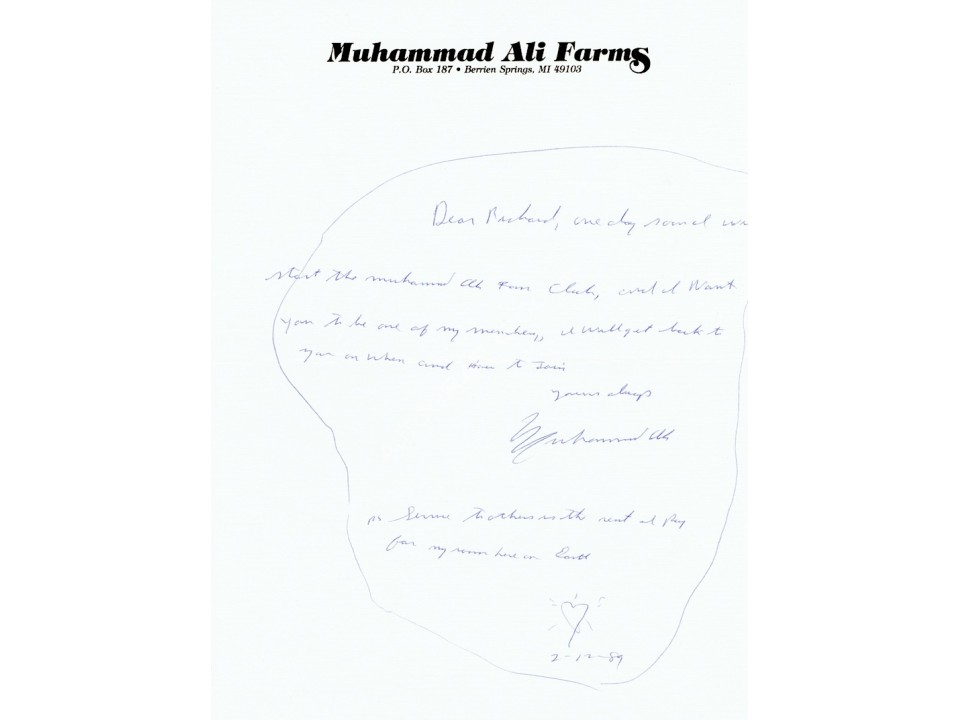 Muhammad Ali Farms
P.O. Box 187 • Berrien Springs, MI 49103
Dear Richard, one day soon I wi
start the muhammad Ali Fan Club, and I Want
you to be one of my members, I will get back to
you on when and how to Join
yours always
Muhammad Ali
ps Service to others is the rent I pay
for my room here on Earth
2-12-89